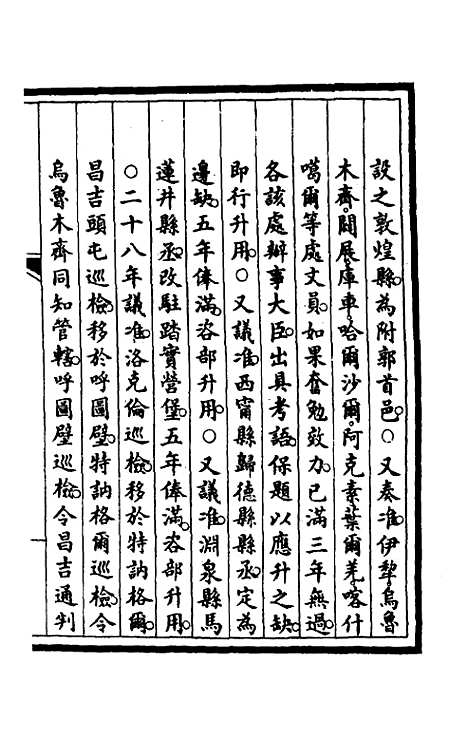 設之敦煌縣爲附郭首邑○○又奏准伊犂烏魯
木齊闢展庫車哈爾沙爾阿克素葉爾羌喀什
噶爾等處文員如果奮勉效力已滿三年無過
各該處辦事大臣出具考語保題以應升之缺
即行升用○又議准西甯縣歸德縣縣丞定爲
邊缺五年俸滿咨部升用○又議准淵泉縣馬
蓮井縣丞改駐踏實營堡五年俸滿咨部升用
○二十八年議准洛克倫巡檢移於特訥格爾
昌吉頭屯巡檢移於呼圖壁特訥格爾巡檢令
烏魯木齊同知管轄呼圖壁巡檢令昌吉通判